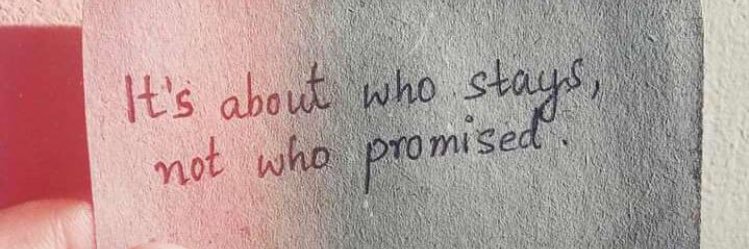 It's about who stays,
not who promised.